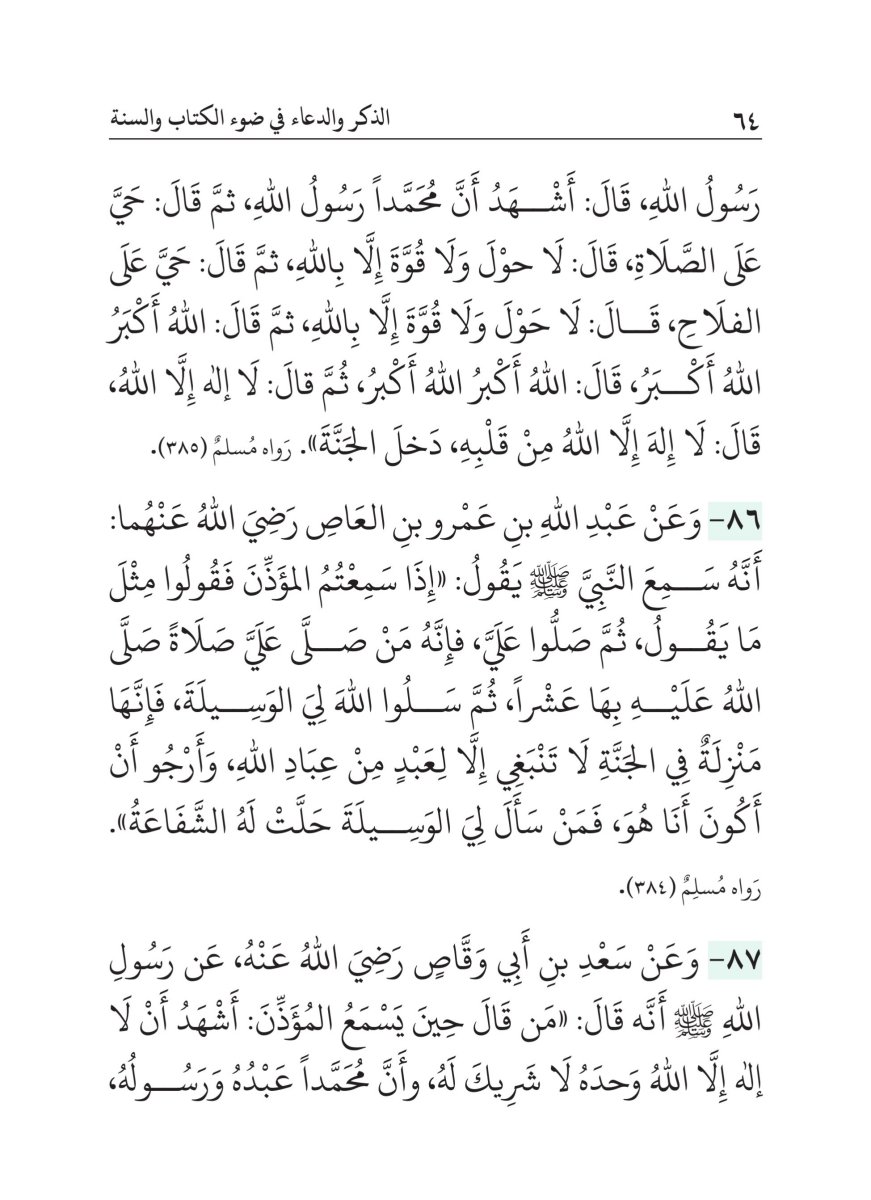 ٦٤ الذكر والدعاء في ضوء الكتاب والسنة
رَسُولُ اللهِ، قَالَ: أَشْـــهَدُ أَنَّ مُحَمَّداً رَسُولُ اللهِ، ثمَّ قَالَ: حَيَّ
عَلَى الصَّلَاةِ، قَالَ: لَا حوْلَ وَلَا قُوَّةَ إِلَّا بِاللهِ، ثمَّ قَالَ: حَيَّ عَلَى
الفلَاحِ، قَـــالَ: لَا حَوْلَ وَلَا قُوَّةَ إِلَّا بِاللهِ، ثمَّ قَالَ: اللهُ أَكْبَرُ
اللهُ أَكْـــبَرُ، قَالَ: اللهُ أَكْبرُ اللهُ أَكْبرُ، ثُمَّ قالَ: لَا إلٰه إِلَّا اللهُ،
قَالَ: لَا إِلهَ إِلَّا اللهُ مِنْ قَلْبِهِ، دَخلَ الجَنَّةَ». رَواه مُسلمٌ (٣٨٥).
٨٦- وَعَنْ عَبْدِ اللهِ بنِ عَمْرو بنِ العَاصِ رَضِيَ اللهُ عَنْهُما:
أَنَّهُ سَـــمِعَ النَّبِيَّ ﷺ يَقُولُ: «إِذَا سَمِعْتُمُ المؤَذِّنَ فَقُولُوا مِثْلَ
مَا يَقُـــولُ، ثُمَّ صَلُّوا عَلَيَّ، فإِنَّهُ مَنْ صَـــلَّى عَلَيَّ صَلَاةً صَلَّى
اللهُ عَلَيْـــهِ بِهَا عَشْراً، ثُمَّ سَـــلُوا اللهَ لِيَ الوَسِـــيلَةَ، فَإِنَّهَا
مَنْزِلَةٌ فِي الجَنَّةِ لَا تَنْبَغِي إِلَّا لِعَبْدٍ مِنْ عِبَادِ اللهِ، وَأَرْجُو أَنْ
أَكُونَ أَنَا هُوَ، فَمَنْ سَأَلَ لِيَ الوَسِـــيلَةَ حَلَّتْ لَهُ الشَّفَاعَةُ».
رَواه مُسلِمٌ (٣٨٤).
٨٧- وَعَنْ سَعْدِ بنِ أَبِي وَقَّاصٍ رَضِيَ اللهُ عَنْهُ، عَن رَسُولِ
اللهِ ﷺ أَنَّه قَالَ: «مَن قَالَ حِينَ يَسْمَعُ المُؤَذِّنَ: أَشْهَدُ أَنْ لَا
إلٰه إِلَّا اللهُ وَحدَهُ لَا شَرِيكَ لَهُ، وأَنَّ مُحَمَّداً عَبْدُهُ وَرَسُـــولُهُ،